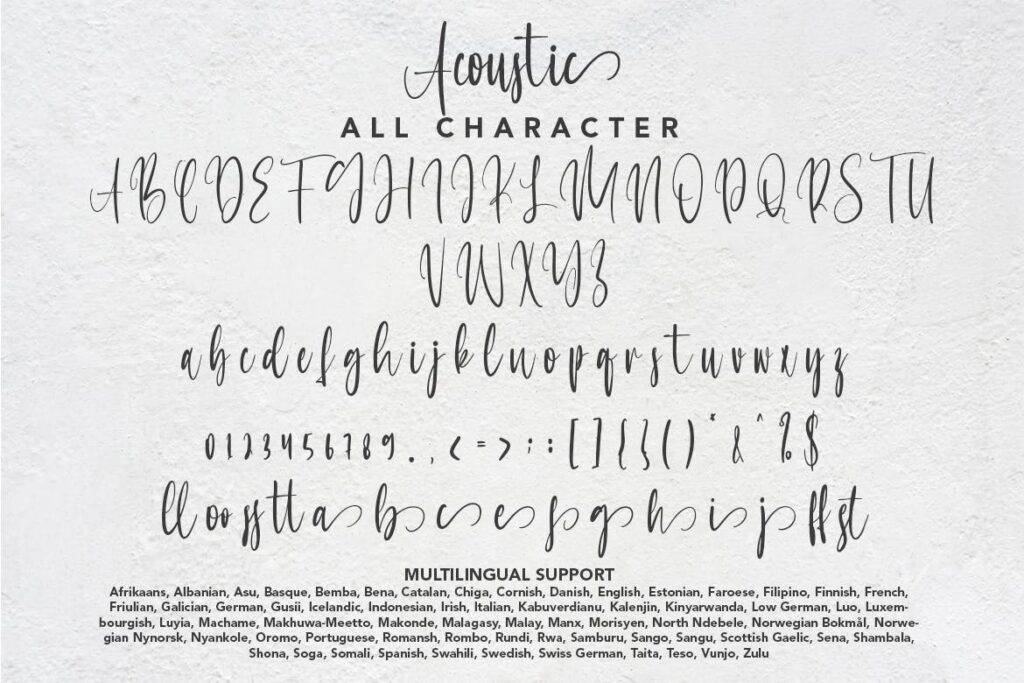 Acoustic
ALL CHARACTER
ABCDEFGHIJKLMNOPQRSTU
VWXYZ
abcdefghijkluopqrstuvwxyz
0123456789.,<=>;:[]{}()*&^%$
lloossttabcesghijffst
MULTILINGUAL SUPPORT
Afrikaans, Albanian, Asu, Basque, Bemba, Bena, Catalan, Chiga, Cornish, Danish, English, Estonian, Faroese, Filipino, Finnish, French,
Friulian, Galician, German, Gusii, Icelandic, Indonesian, Irish, Italian, Kabuverdianu, Kalenjin, Kinyarwanda, Low German, Luo, Luxem-
bourgish, Luyia, Machame, Makhuwa-Meetto, Makonde, Malagasy, Malay, Manx, Morisyen, North Ndebele, Norwegian Bokmål, Norwe-
gian Nynorsk, Nyankole, Oromo, Portuguese, Romansh, Rombo, Rundi, Rwa, Samburu, Sango, Sangu, Scottish Gaelic, Sena, Shambala,
Shona, Soga, Somali, Spanish, Swahili, Swedish, Swiss German, Taita, Teso, Vunjo, Zulu